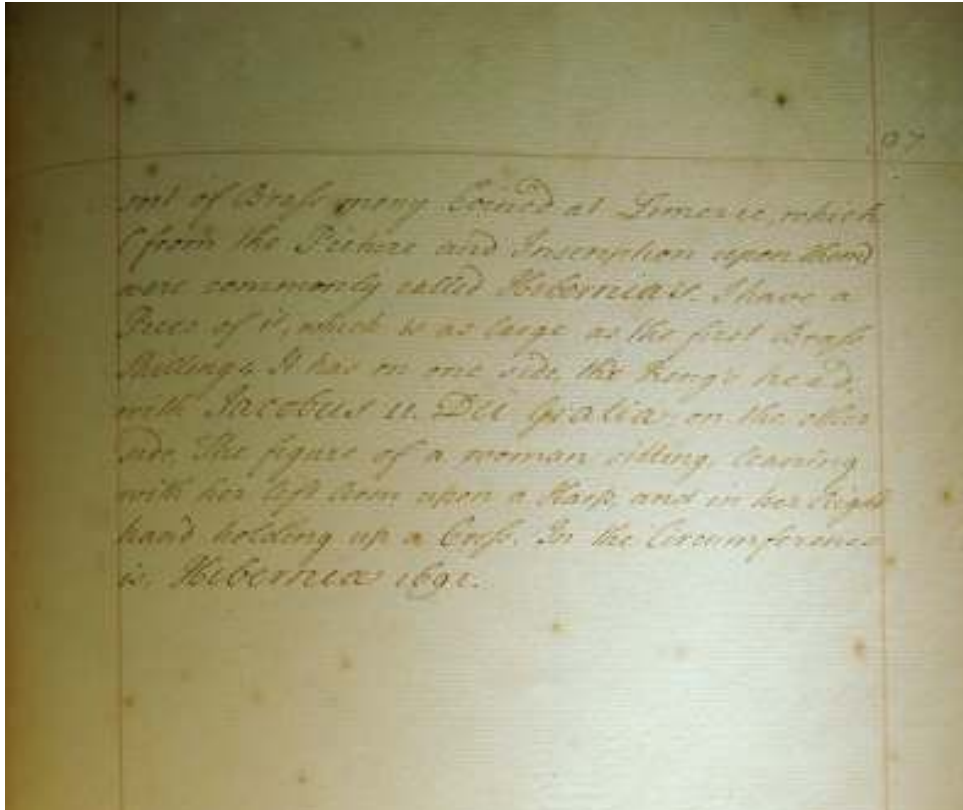 07
ent of Brass mony Coined at Limeric, which
(from the Picture and Inscription upon them)
were commonly called Hibernia's. I have a
Piece of it, which is as large as the first Brass
Shillings. It has on one side, the King's head,
with Jacobus II. Dei Gratia: on the other
side, The figure of a woman sitting, leaning
with her left Arm upon a Harp, and in her Right
hand holding up a Cross. In the Circumference
is, Hibernia 1691.